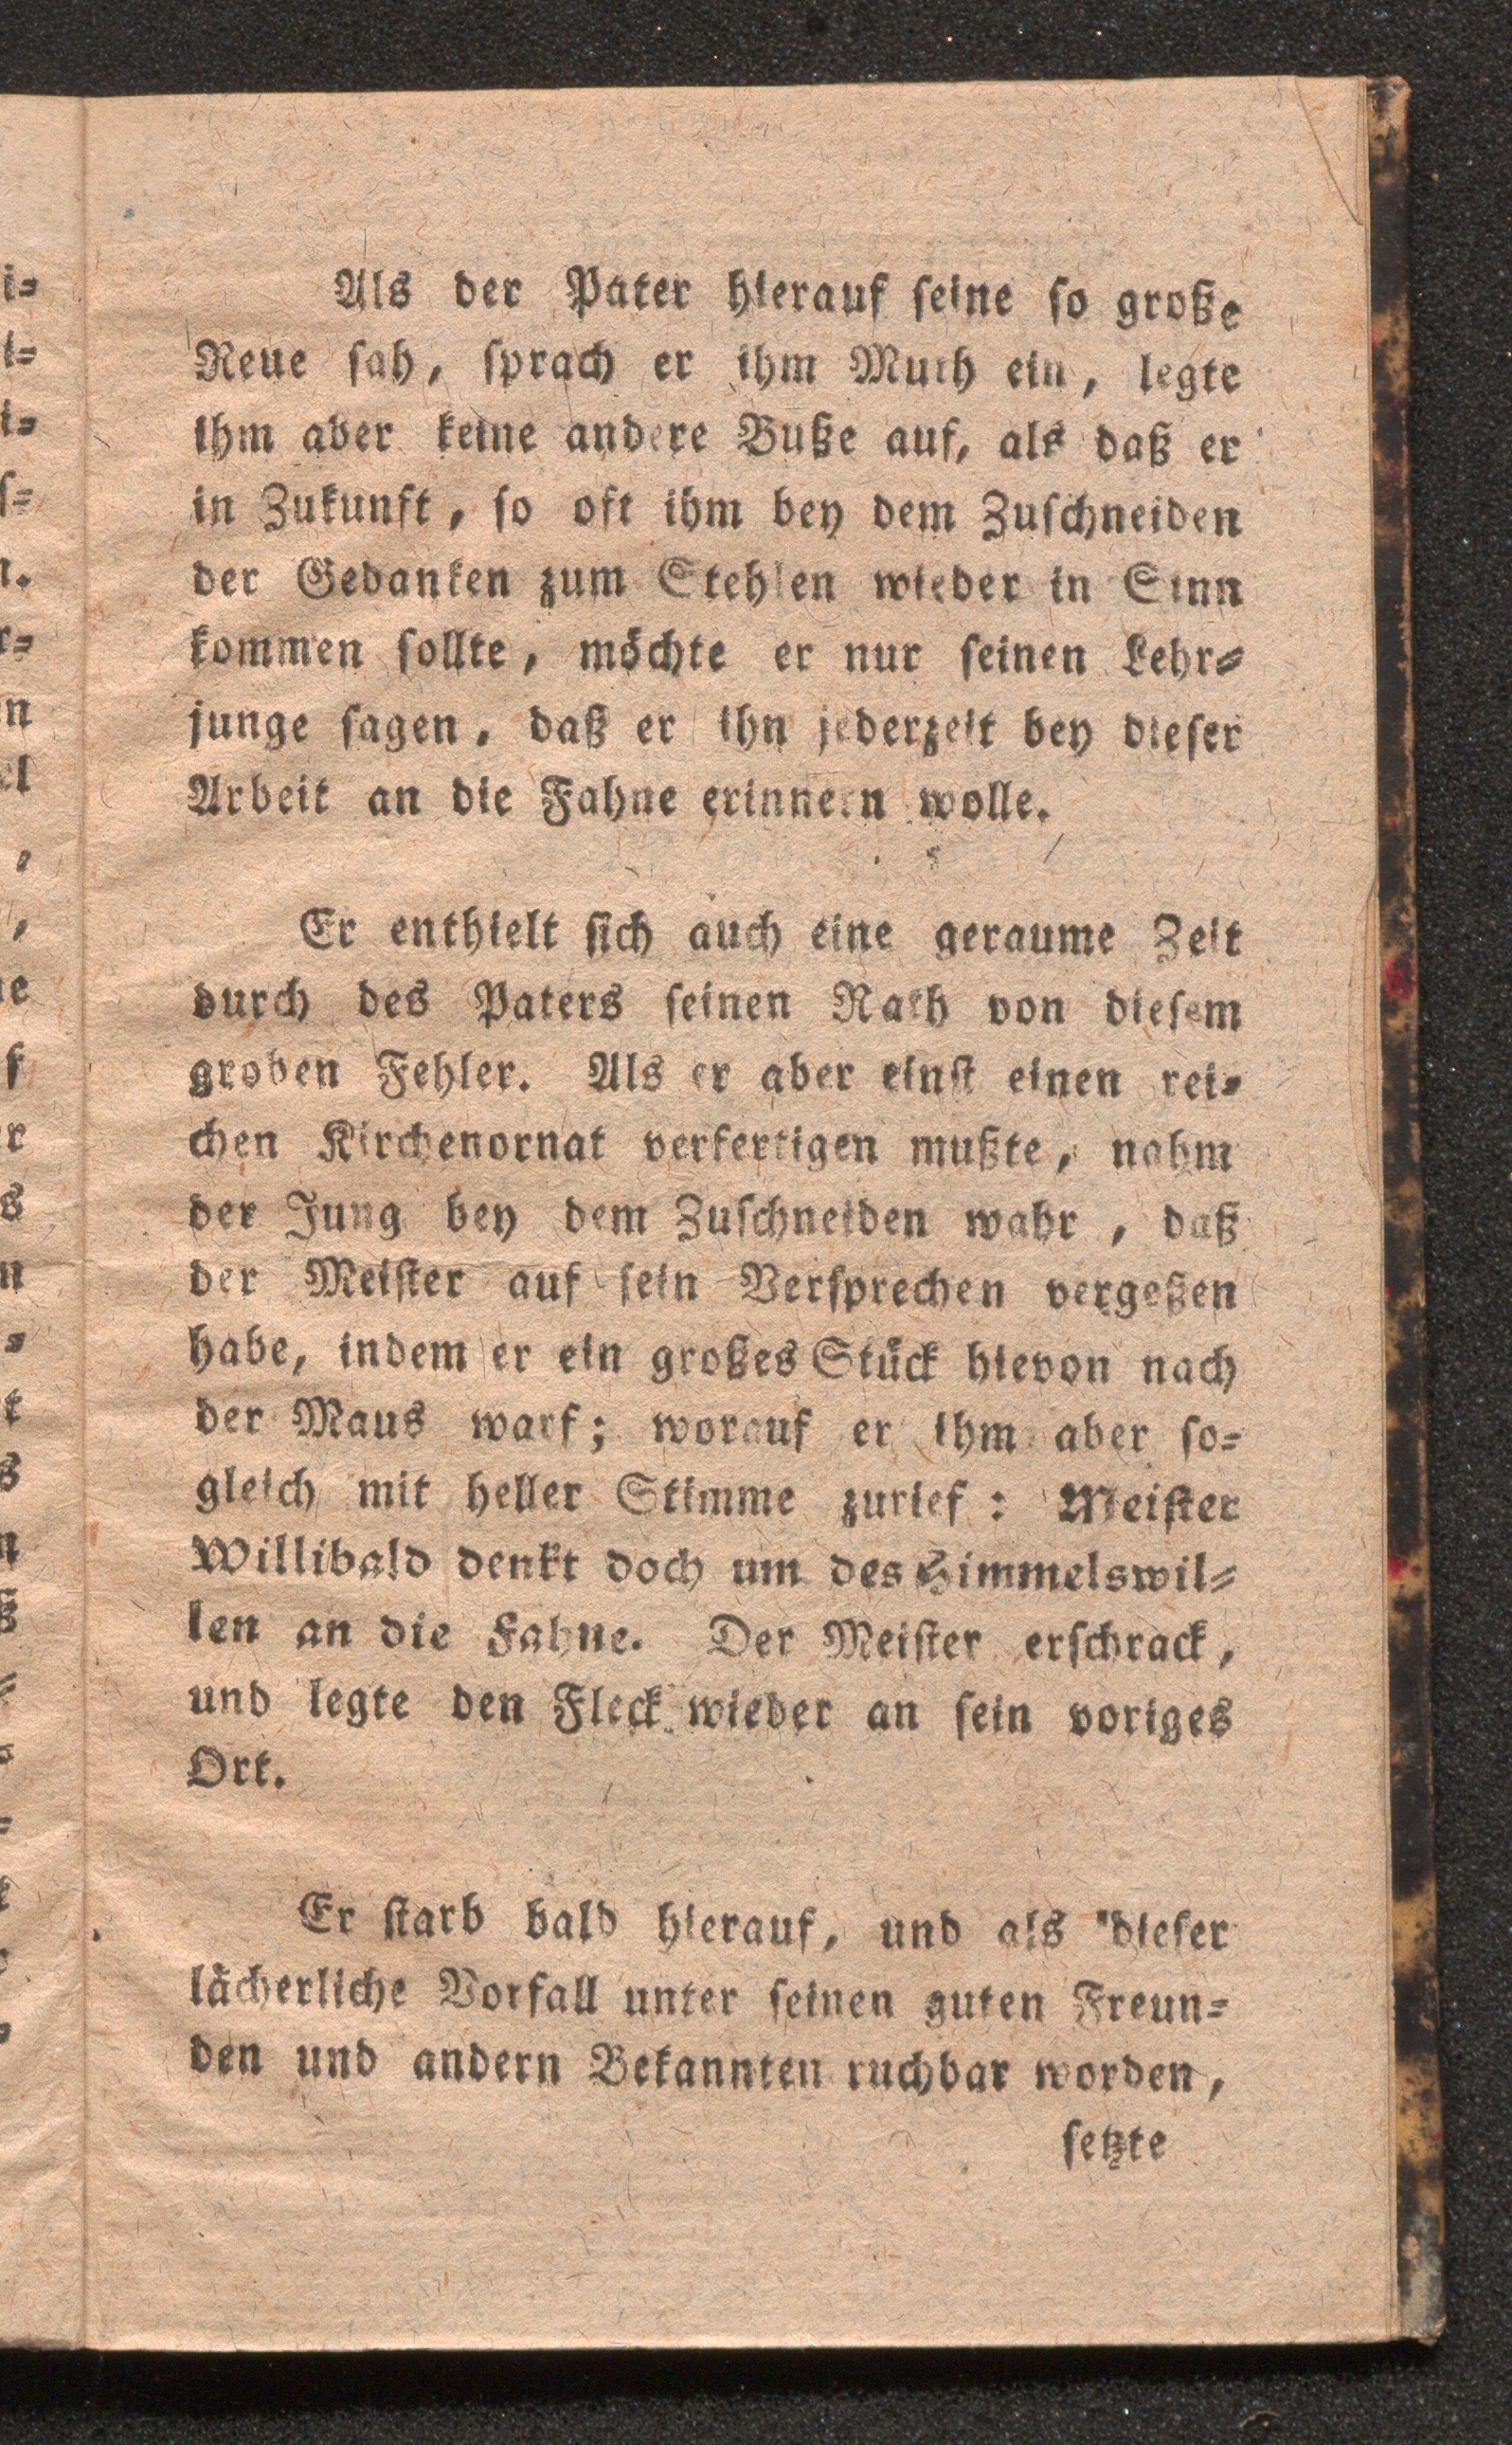 Als der Pater hierauf seine so große
Reue sah, sprach er ihm Muth ein, legte
ihm aber keine andere Buße auf, als daß er
in Zukunft, so oft ihm bey dem Zuschneiden
der Gedanken zum Stehlen wieder in Sinn
kommen sollte, möchte er nur seinen Lehr=
junge sagen, daß er ihn jederzeit bey dieser
Arbeit an die Fahne erinnern wolle.
Er enthielt sich auch eine geraume Zeit
durch des Paters seinen Rath von diesem
groben Fehler. Als er aber einst einen rei=
chen Kirchenornat verfertigen mußte, nahm
der Jung bey dem Zuschneiden wahr, daß
der Meister auf sein Versprechen vergeßen
habe, indem er ein großes Stück hievon nach
der Maus warf; worauf er ihm aber so=
gleich mit heller Stimme zurief: Meister
Willibald denkt doch um des Himmelswil=
len an die Fahne. Der Meister erschrack,
und legte den Fleck wieder an sein voriges
Ort.
Er starb bald hierauf, und als dieser
lächerliche Vorfall unter seinen guten Freun=
den und andern Bekannten ruchbar worden,
setzte